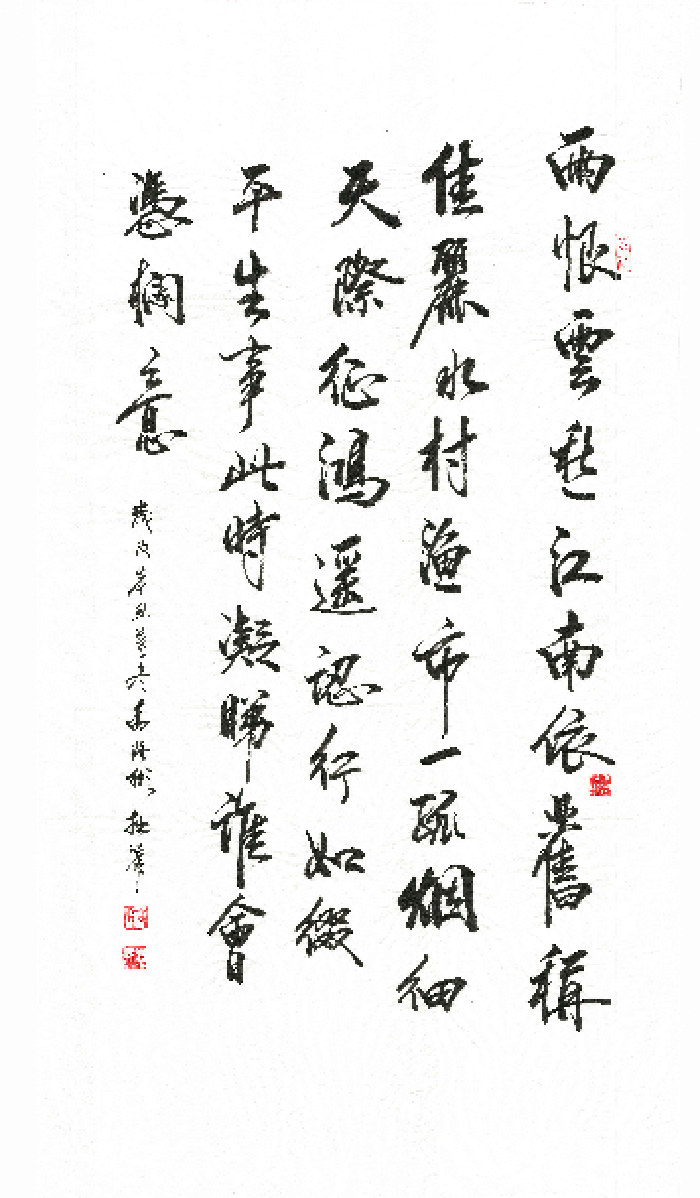 雨恨雲愁江南依舊稱
佳麗水村漁市一孤烟細
天際征鴻遥認行如綴
平生事此時凝睇誰會
憑欄意
歲次辛丑冬